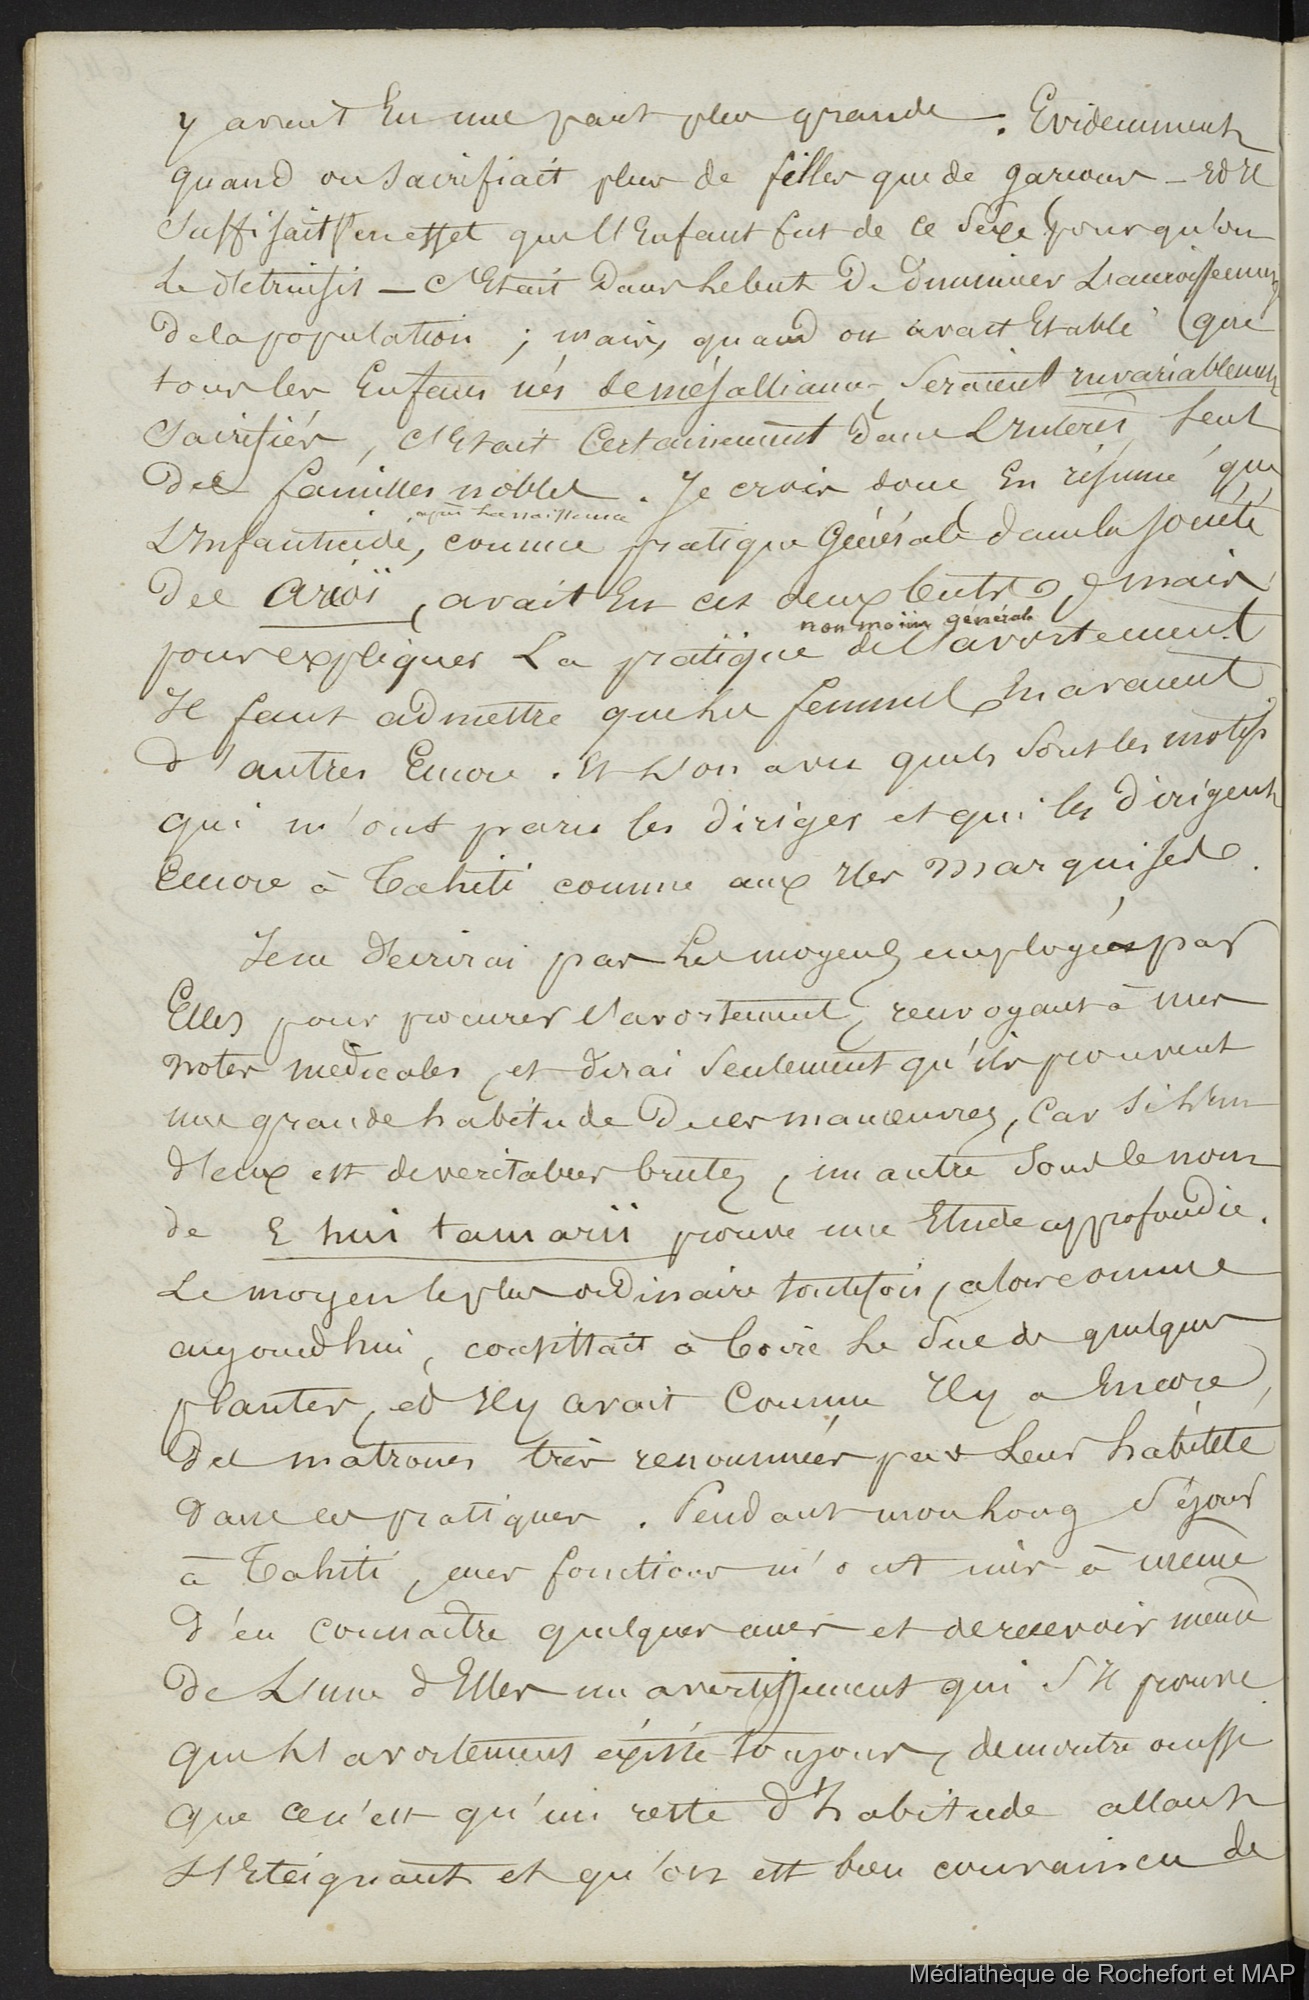 y avait Eu une part plus grande. Evidemment
quand on sacrifiait plus de filles que de garcons – Et Il
suffisait (en effet que l'Enfant fut de ce sexe) pour qu'on
le detruisit – C'Etait Dans le but De diminuer L'accroissement
De la population ; mais, quand on avait Etabli que
tous les Enfans nés de mésalliance, seraient invariablement
sacrifiés, C'Etait Certainement dans L'interêt seul
Des familles nobles. Je crois donc En résumé que
après la naissance
L'Infanticide, comme pratique Générale dans la societé
Des Arioï, avait Eu ces deux buts, mais
non moins générale
pour expliquer La pratique de l'avortement
Il faut admettre que les femmes En avaient
d'autres Encore. Et L'on a vu quels sont les motifs
qui m'ont paru les diriger et qui les dirigent
Encore à Tahiti comme aux Iles Marquises.
Je ne décrirai pas Les moyens employés par
Elles pour procurer l'avortement, renvoyant à mes
notes medicales, et dirai seulement qu'ils prouvent
une grande habitude De ces manœuvres, Car si L'un
d'eux est de veritables brutes, un autre sous le nom
de E hui tamarii prouve une Etude approfondie.
Le moyen le plus ordinaire toutefois, alors comme
aujourd'hui, consistait à boire Le suc de quelques
plantes, et Il y avait Comme Il y a Encore,
Des matrones très renommées par Leur habileté
Dans ces pratiques. Pendant mon Long séjour
à Tahiti, mes fonctions m'ont mis à même
D'en connaître quelques unes et de recevoir même
De L'une d'Elles un avertissement qui s'Il prouve
que L'avortement éxiste toujours, demontre aussi
que ce n'est qu'un reste d'habitude allant
s'Eteignant et qu'on est bien convaincu de
Médiathèque de Rochefort et MAP